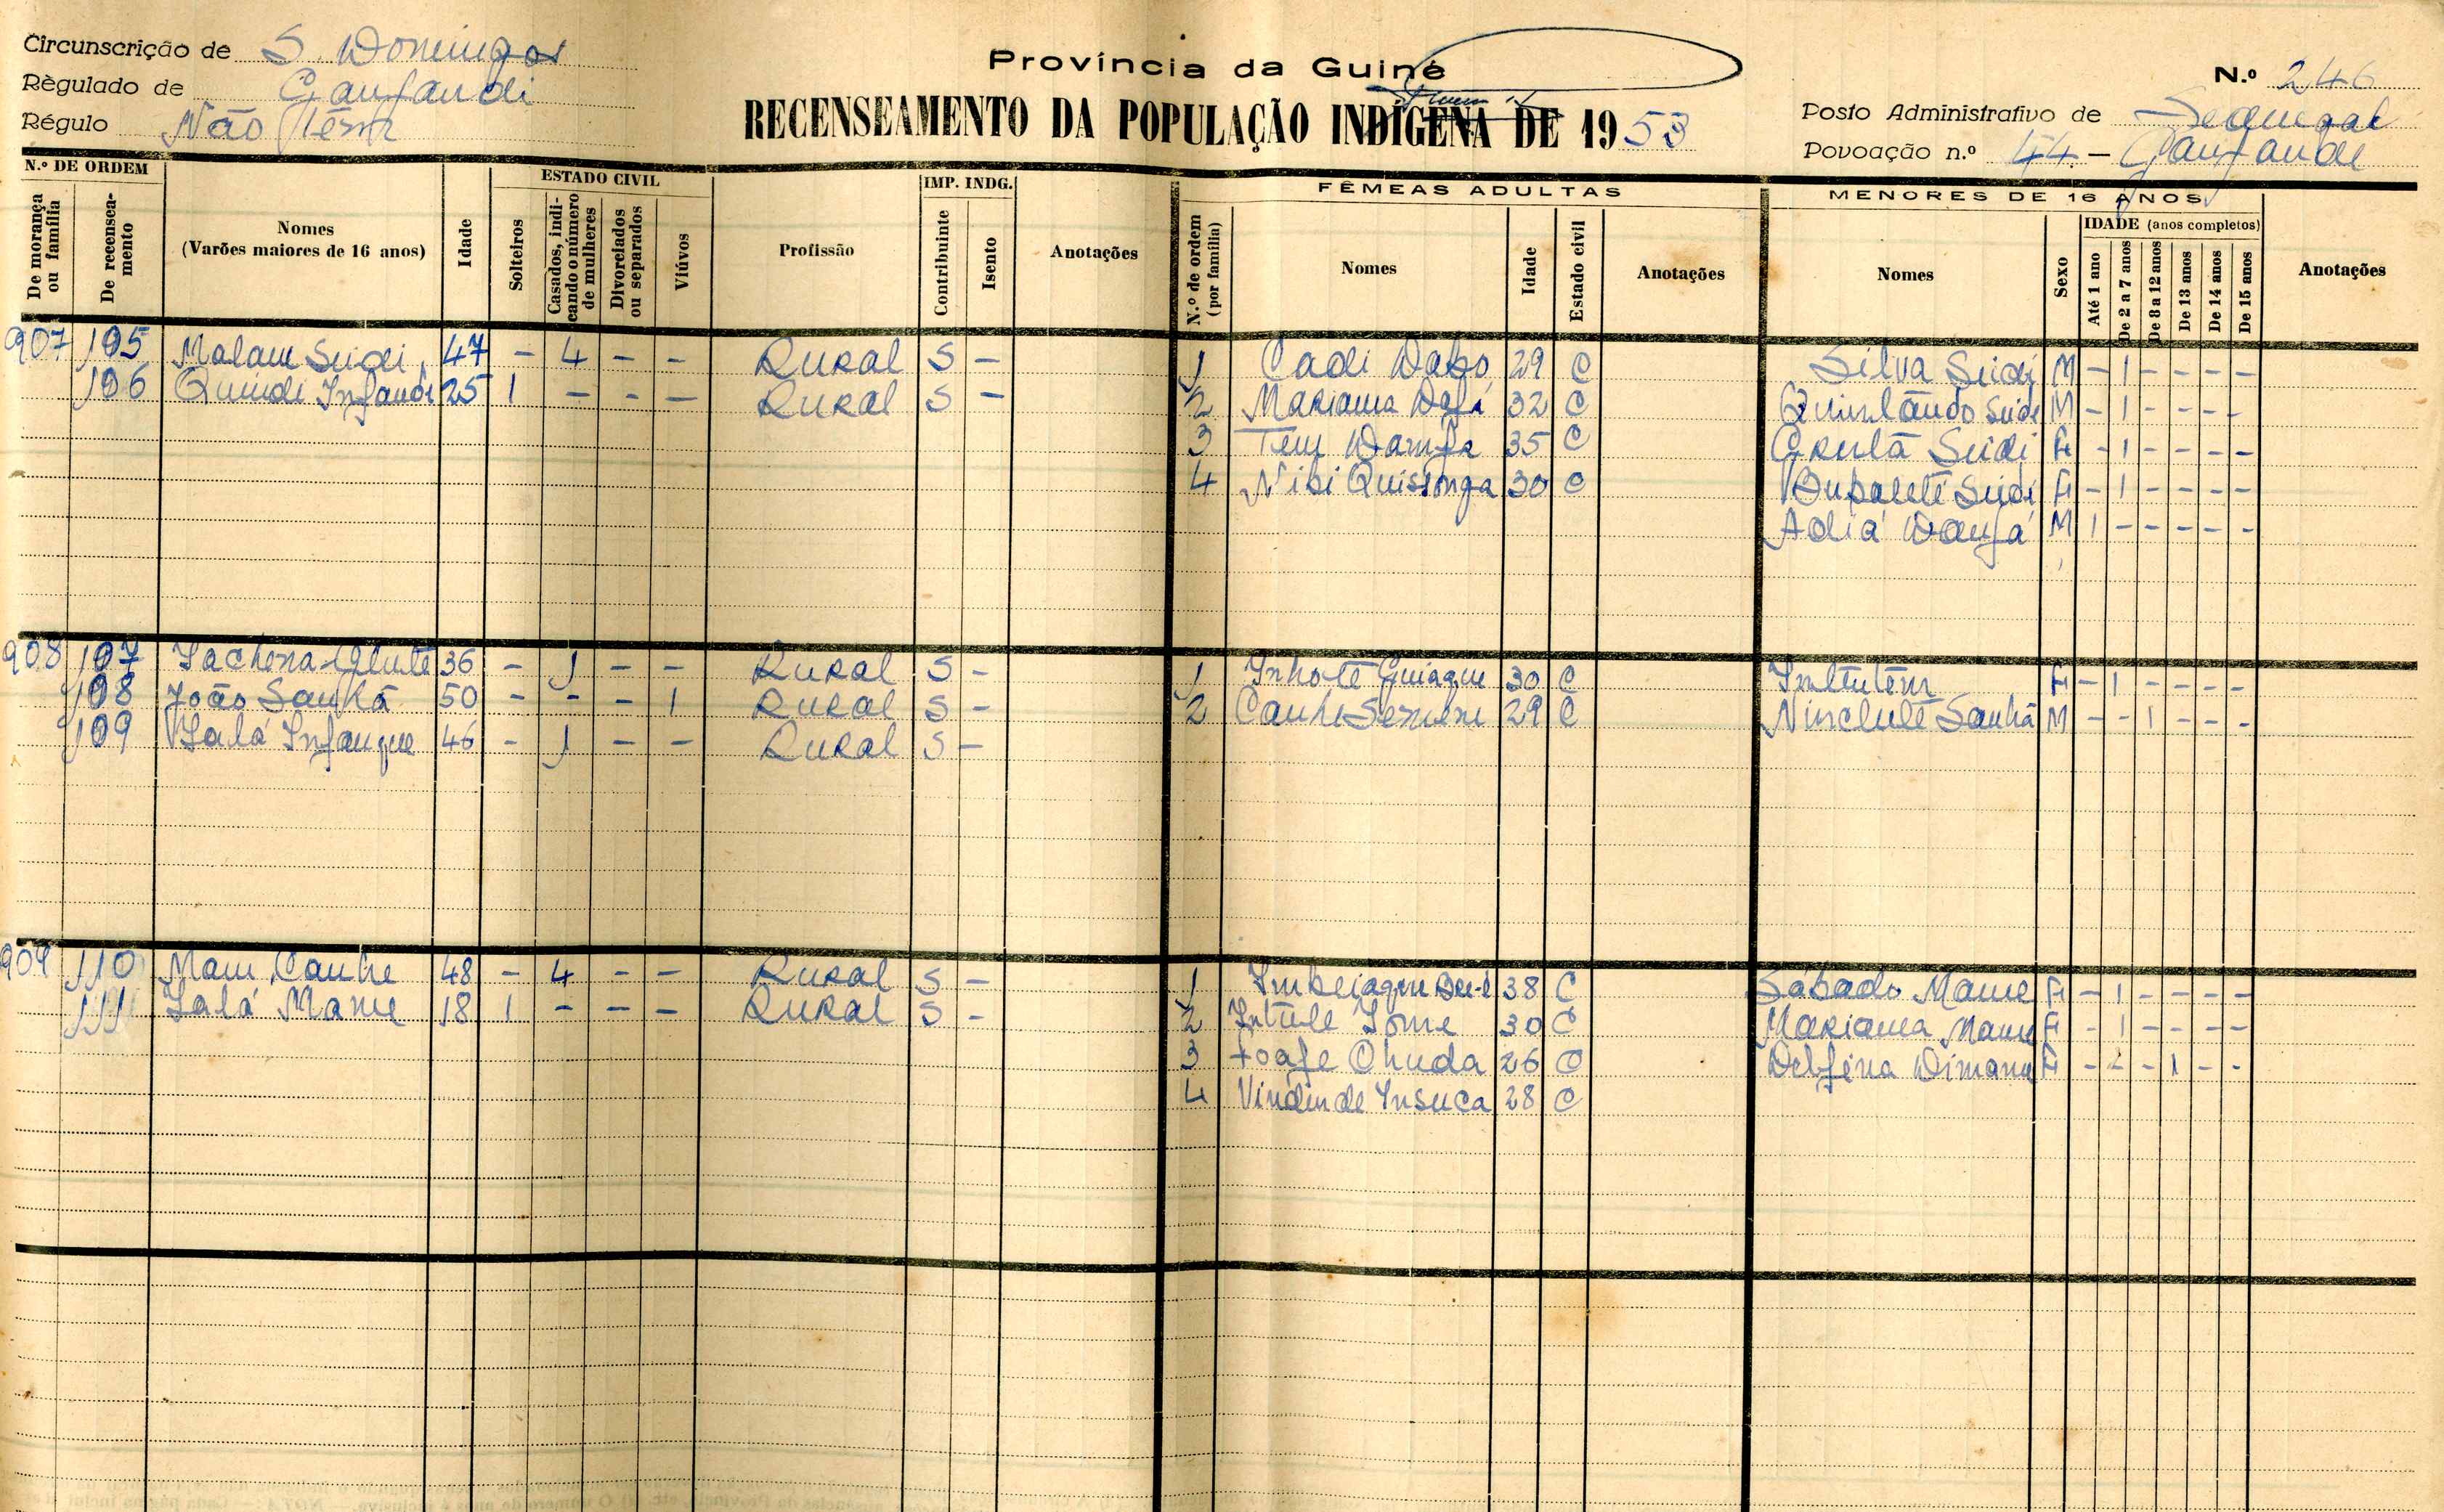 Circunscrição de S. Domingos
Règulado de Ganfandi
Régulo Não têm
Província da Guiné
RECENSEAMENTO DA POPULAÇÃO INDÍGENA DE 1953
N.º 246
Posto Administrativo de Sedengal
Povoação n.º 44 - Ganfandi
N.º DE ORDEM
De morança ou família
De recenseamento
Nomes
(Varões maiores de 16 anos)
Idade
ESTADO CIVIL
Solteiros
Casados, indicando o número de mulheres
Divorciados ou separados
Viúvos
Profissão
IMP. INDG.
Contribuinte
Isento
Anotações
FÊMEAS ADULTAS
N.º de ordem (por família)
Nomes
Idade
Estado civil
Anotações
MENORES DE 16 ANOS
Nomes
Sexo
IDADE (anos completos)
Até 1 ano
De 2 a 7 anos
De 8 a 12 anos
De 13 anos
De 14 anos
De 15 anos
Anotações
907 105 Malam Seidi 47 - 4 - - Rural S - 1 Cadi Dabo 29 C Silva Seidi M - 1 - - - -
106 Quindi Infandi 25 1 - - - Rural S - 2 Mariama Dafá 32 C Quintãudo Seidi M - 1 - - - -
3 Tem Damfa 35 C Seidi F - 1 - - - -
4 Nibi Quissonga 30 C Seidi F - 1 - - - -
Adiá Danfá M 1 - - - - -
908 107 36 - 1 - - Rural S - 1 Inhote 30 C F - 1 - - - -
108 João Sanhá 50 - - - 1 Rural S - 2 29 C Sanhá M - - 1 - - -
109 Lalá Infanque 46 - 1 - - Rural S -
909 110 Mam Canhe 48 - 4 - - Rural S - 1 38 C Sábado Mame F - 1 - - - -
111 Lalá Mame 18 1 - - - Rural S - 2 30 C Mariama Mame F - 1 - - - -
3 Foafe Ohuda 26 C Delfina F - - - 1 - -
4 Vindinde Insuca 28 C